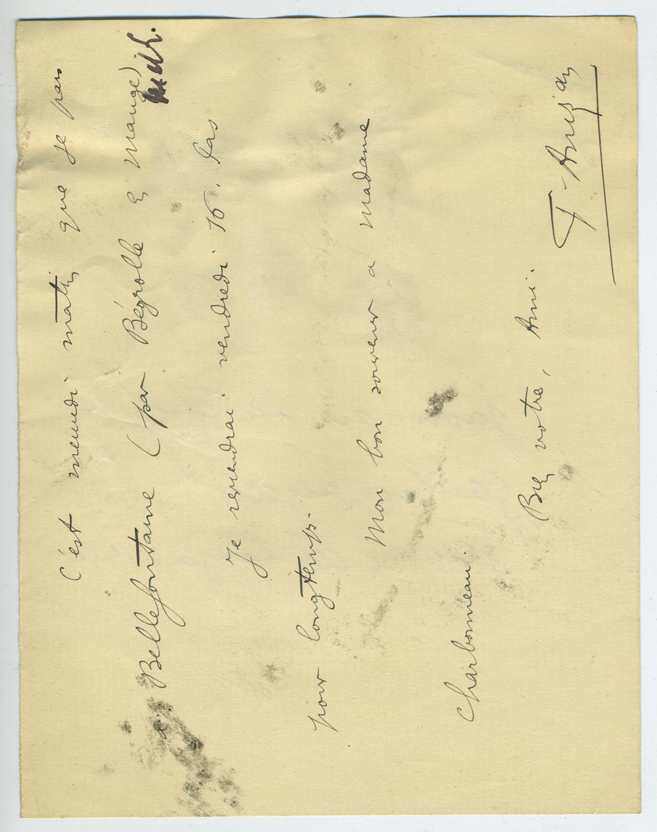 C'est mercredi matin que je pars
à Bellefontaine (par Bégrolle en Mauges)
Je reviendrai vendredi 16. Pas
pour longtemps.
Mon bon souvenir à Madame
Charbonneau.
Bien votre, Ami.